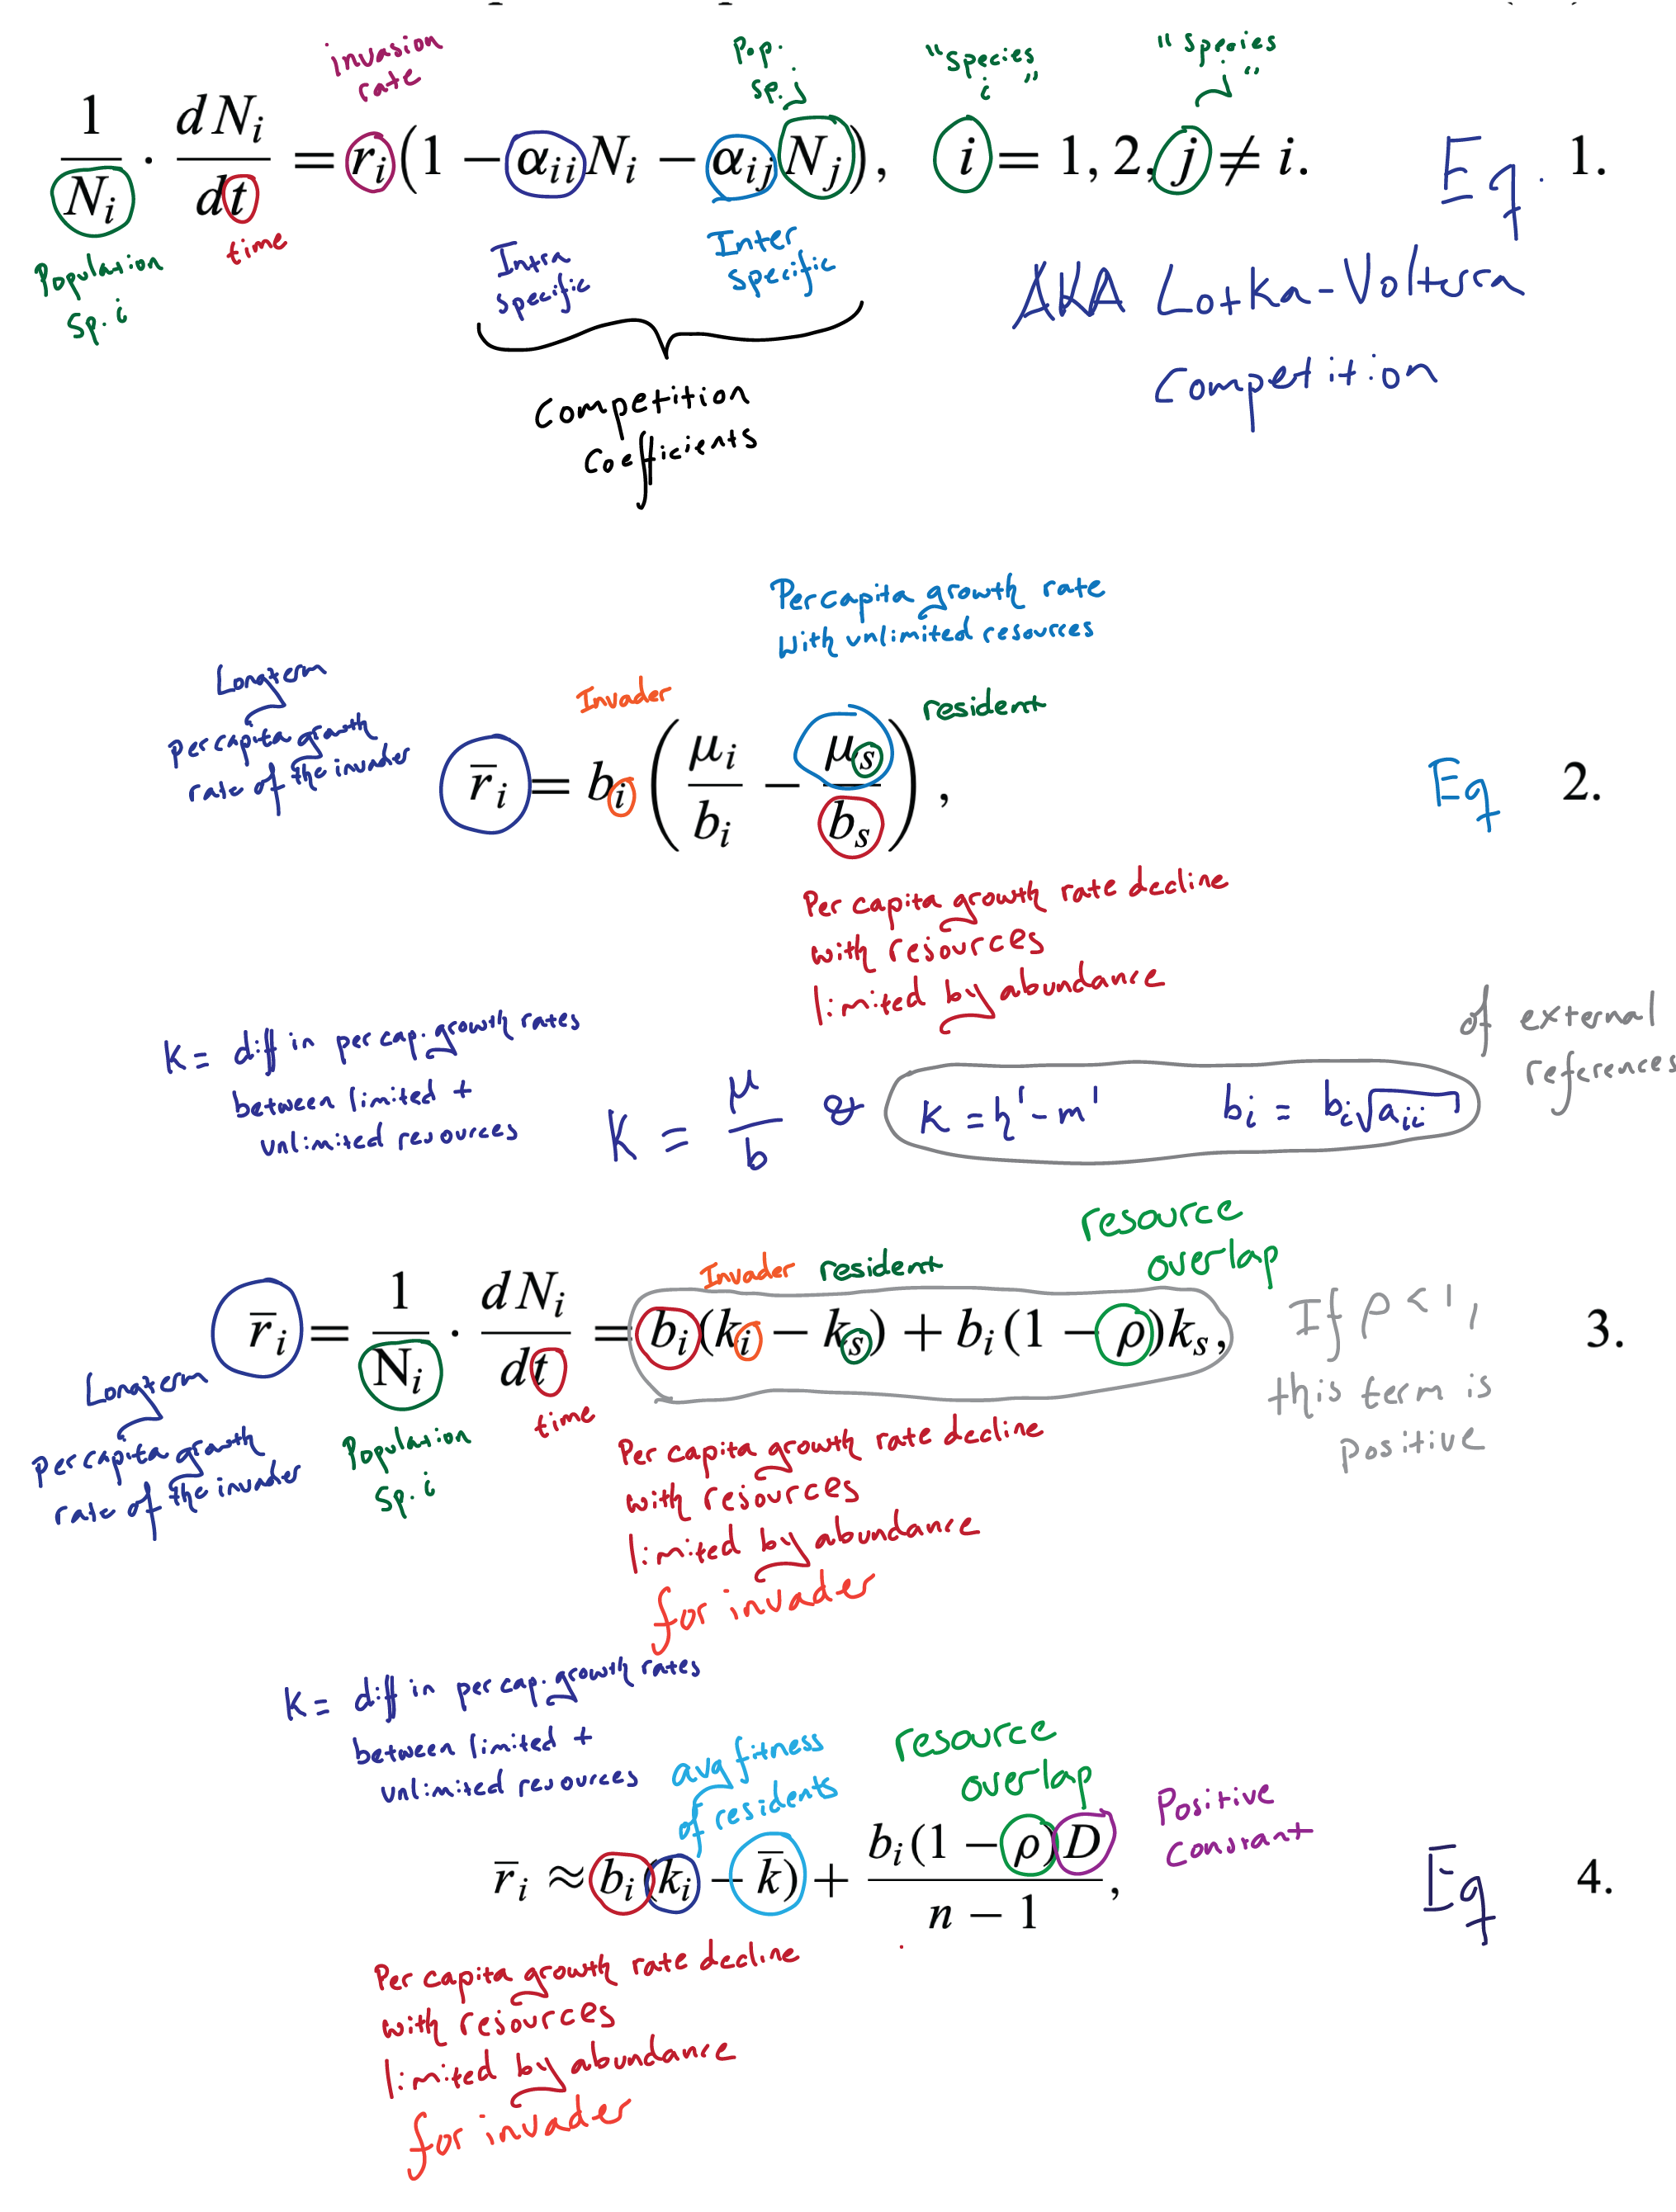 invasion
rate
Pop.
sp. j
"species
i"
"species
j"
1/N_i · dN_i/dt = r_i(1 − α_ii N_i − α_ij N_j), i = 1, 2, j ≠ i. Eq. 1.
Population
Sp. i
time
Intra
specific
Inter
specific
Competition
Coefficients
AKA Lotka-Volterra
Competition
Per capita growth rate
with unlimited resources
Longterm
per capita growth
rate of the invader
Invader
resident
r̄_i = b_i (μ_i/b_i − μ_s/b_s), Eq 2.
Per capita growth rate decline
with resources
limited by abundance
K = diff in per cap. growth rates
between limited +
unlimited resources
K = μ/b & K = h' − m' b_i = b_i√a_ii
of external
references
resource
overlap
Invader resident
r̄_i = 1/N_i · dN_i/dt = b_i(k_i − k_s) + b_i(1 − ρ)k_s, 3.
If ρ < 1,
this term is
positive
Longterm
per capita growth
rate of the invader
Population
Sp. i
time
Per capita growth rate decline
with resources
limited by abundance
for invader
K = diff in per cap. growth rates
between limited +
unlimited resources
avg fitness
of residents
resource
overlap
Positive
constant
r̄_i ≈ b_i(k_i − k̄) + b_i(1 − ρ)D/n − 1, Eq 4.
Per capita growth rate decline
with resources
limited by abundance
for invader